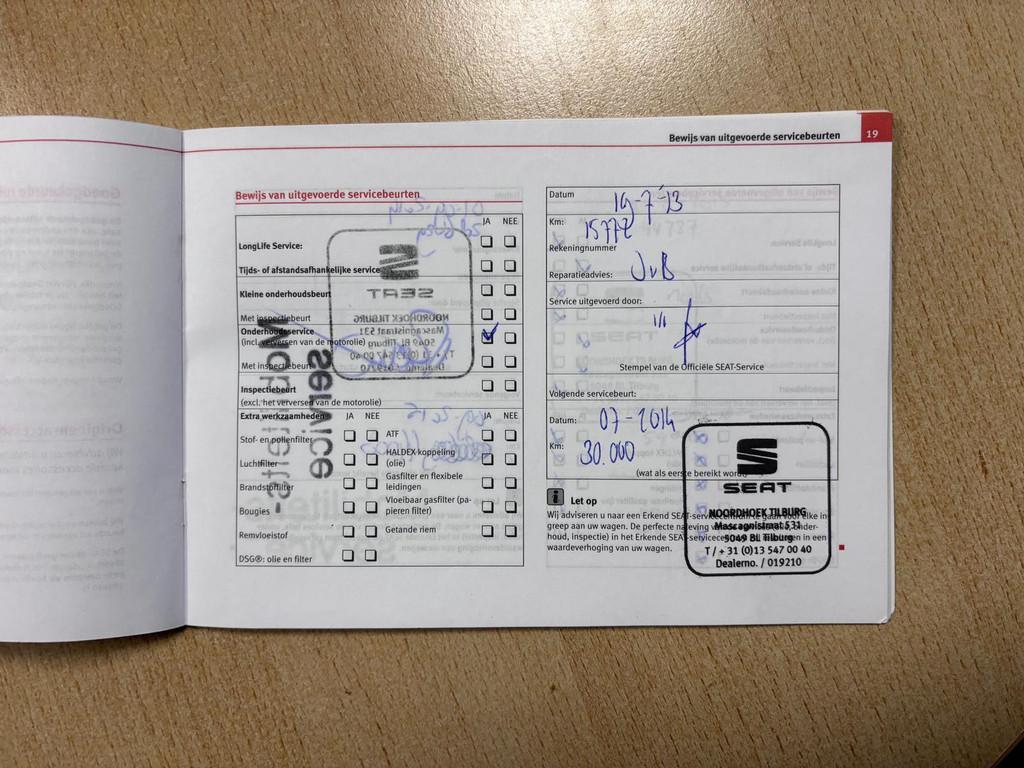 Bewijs van uitgevoerde servicebeurten 19
Bewijs van uitgevoerde servicebeurten
JA NEE
LongLife Service:
Tijds- of afstandsafhankelijke service
Kleine onderhoudsbeurt
Met inspectiebeurt
Onderhoudsservice
(incl. verversen van de motorolie)
Met inspectiebeurt
Inspectiebeurt
(excl. het verversen van de motorolie)
Extra werkzaamheden JA NEE JA NEE
Stof- en pollenfilter
Luchtfilter
Brandstoffilter
Bougies
Remvloeistof
DSG®: olie en filter
ATF
HALDEX-koppeling
(olie)
Gasfilter en flexibele
leidingen
Vloeibaar gasfilter (pa-
pieren filter)
Getande riem
Mobiliteits-
service
Datum 19-7-'13
Km: 15772
Rekeningnummer
Reparatieadvies: JvB
Service uitgevoerd door:
Stempel van de Officiële SEAT-Service
Volgende servicebeurt:
Datum: 07-2014
Km: 30.000
(wat als eerste bereikt wordt)
i Let op
Wij adviseren u naar een Erkend SEAT-servicecentrum te gaan voor elke in-
greep aan uw wagen. De perfecte naleving van onder-
houd, inspectie) in het Erkende SEAT-servicecentrum in een
waardeverhoging van uw wagen.
SEAT
NOORDHOEK TILBURG
Mascagnistraat 531
5049 BL Tilburg
T / + 31 (0)13 547 00 40
Dealerno. / 019210